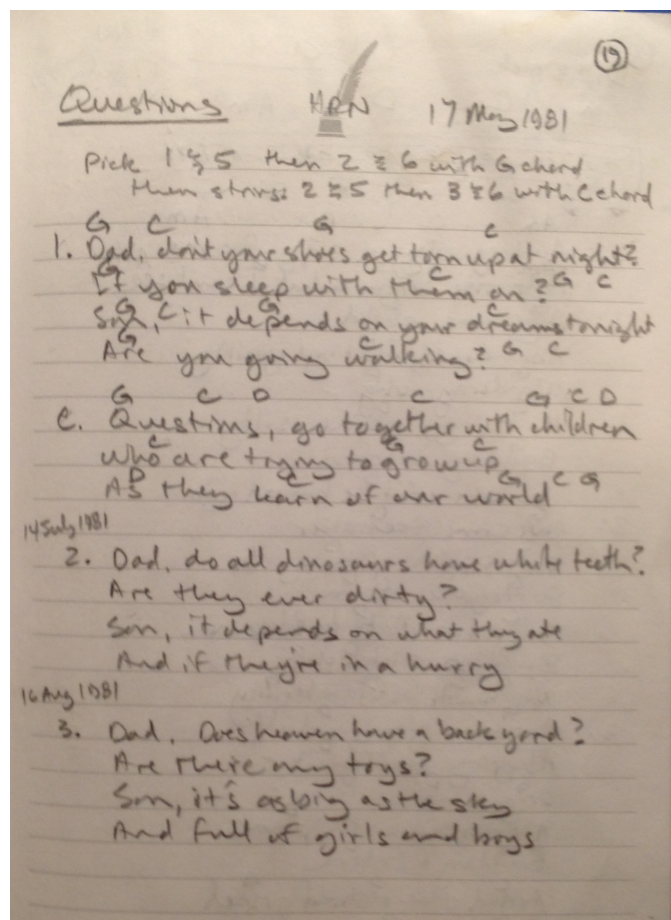 19
Questions HRN 17 May 1981
Pick 1 & 5 then 2 & 6 with G chord
then strings 2 & 5 then 3 & 6 with C chord
G C G C
1. Dad, don't your shoes get torn up at night?
G C G C
If you sleep with them on?
G C G C
Son, it depends on your dreams tonight
G C G C
Are you going walking?
G C D C G C D
C. Questions, go together with children
C G C
who are trying to grow up
D C G C G
As they learn of our world
14 July 1981
2. Dad, do all dinosaurs have white teeth?
Are they ever dirty?
Son, it depends on what they ate
And if they're in a hurry
16 Aug 1981
3. Dad, Does heaven have a back yard?
Are there any toys?
Son, it's as big as the sky
And full of girls and boys